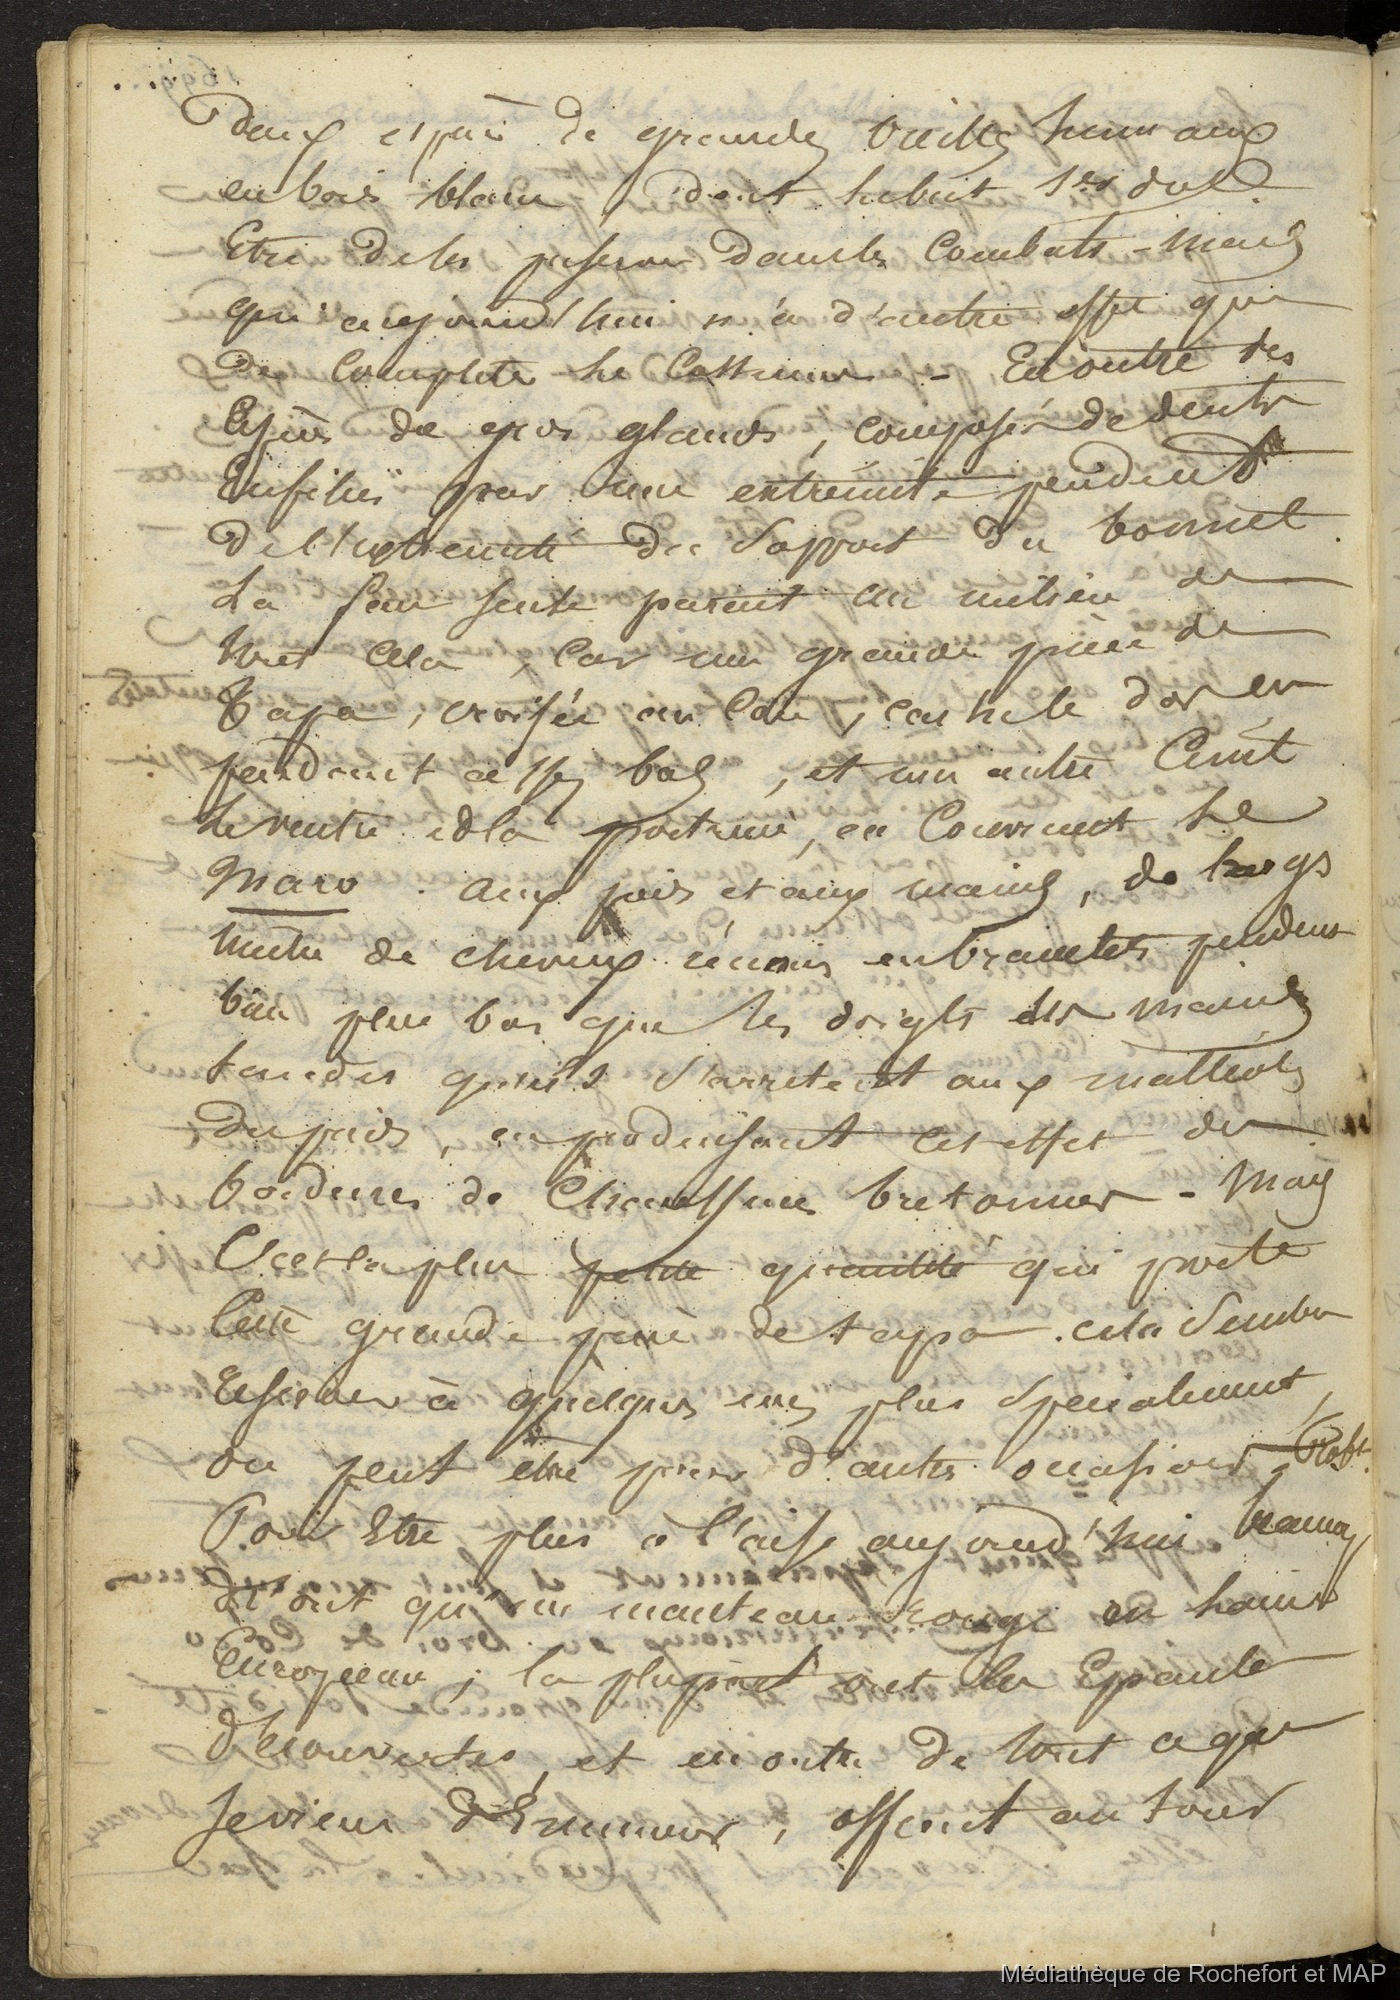 deux espèce de grandes oreilles
en bois blanc dont le but
Etre de les preserver dans les Combats - Mais
qui aujourd'hui n'a d'autre effet que
de Completer le Costume - En outre des
Espèces de gros glands, composés de dents
Enfilées par une extremité pendent
de l'extremité du Support du bonnet
La face seule parait au milieu de
tout cela, car une grande pièce de
Tapa, croisée au Cou, cache le dos en
pendant assez bas, et une autre Ceint
le ventre et la poitrine, en Couvrant le
Maro. aux pieds et aux mains, de longs
de cheveux réunis en bracelets pendent
bien plus bas que les doigts des mains
tandis qu'ils s'arretent aux malleoles
des pieds, en produisant cet effet de
bordures de Chaussures bretonnes - Mais
C'est la plus petite quantité qui porte
Cette grande pièce de tapa. cela Semble
Reserver à quelques uns plus Specialement,
ou peut être pour d'autres occasions,
Pour Etre plus à l'aise aujourd'hui beaucoup
N'ont qu'un manteau rouge en laine
Européenne; la plupart ont les Epaules
decouvertes, et en outre de tout ce que
je viens d'Enumerer, offrent au tour
Médiathèque de Rochefort et MAP